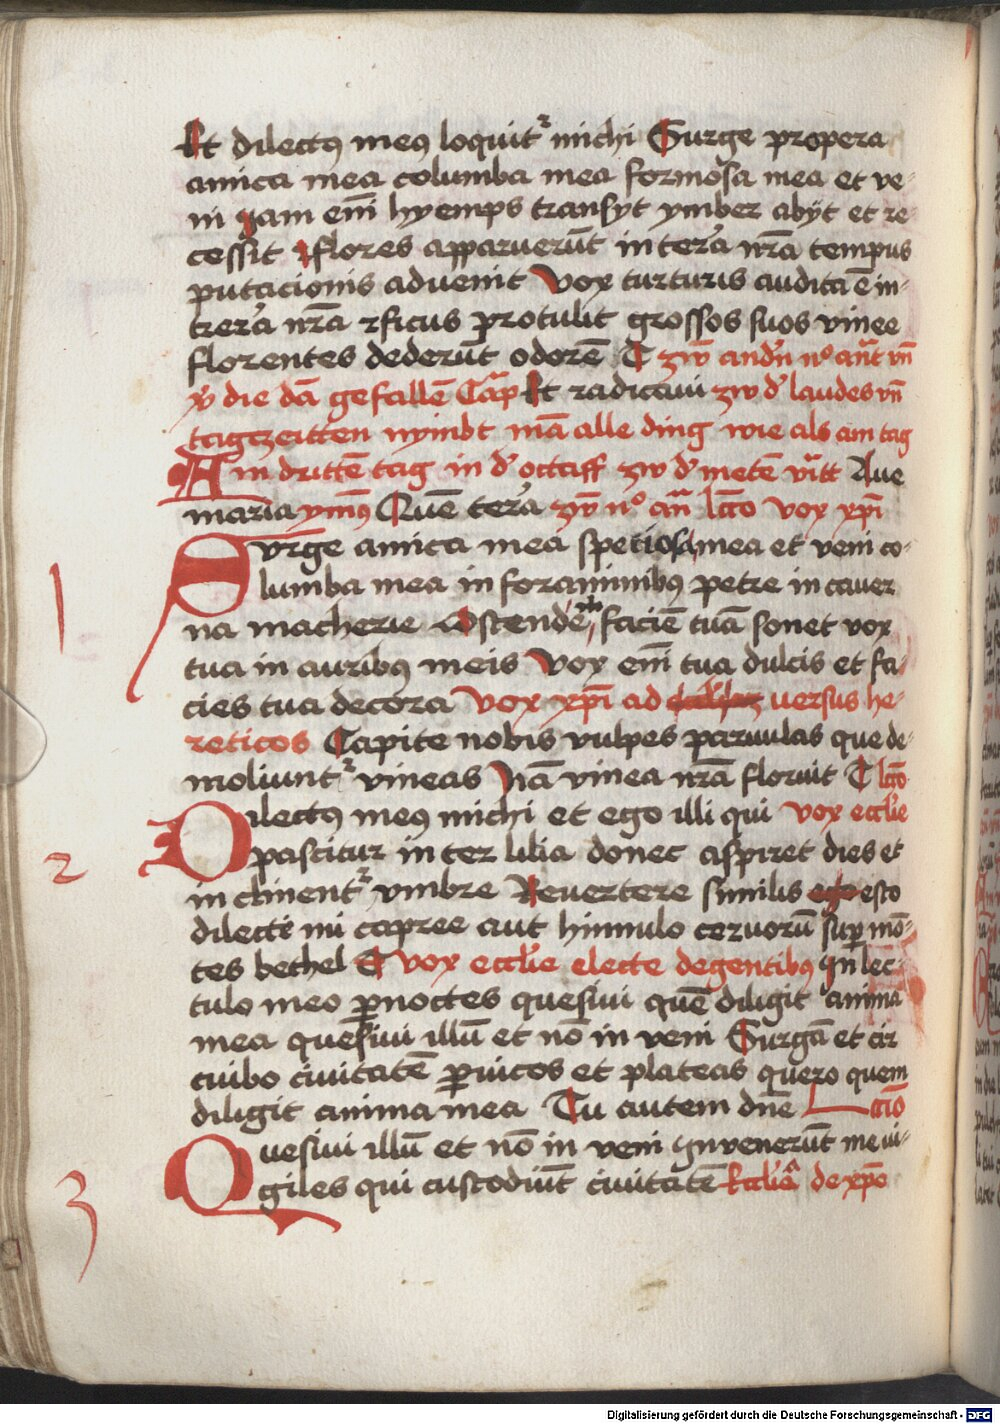 Et dilectꝰ meꝰ loquit᷑ michi Surge propera
amica mea columba mea formosa mea et ve-
ni Jam em̄ hyemps transyt ymber abijt et re-
cessit flores apparuerūt in terra nr̄a tempus
putacionis advenit Vox turturis audita ē in-
terra nr̄a ficus protulit grossos suos vinee
florentes dederūt odorē zw̄ andn̄ n° an̄t vn̄
die dā gefallē Cap̄ Et radicaui zw d' laudes vn̄
tagzeitten nymbt mā alle ding wie als am tag
Am drittē tag in d' octaff zw d' metē Aue
maria ymꝰ Quē terra zw̄ n° an̄ lc̄co vox xp̄i
Surge amica mea speciosa mea et veni co-
lumba mea in foraminibꝰ petre in cauer
na macherie Ostende m̄ faciē tuā sonet vox
tua in auribꝰ meis Vox em̄ tua dulcis et fa-
cies tua decora Vox xp̄i ad uersus he-
reticos Capite nobis vulpes paruulas que de-
moliunt᷑ vineas Nā vinea nr̄a floruit lc̄co
Dilectꝰ meꝰ michi et ego illi qui vox eccl'ie
pascitur inter lilia donec aspiret dies et
inclinent᷑ vmbre Reuertere similis esto
dilecte mi capree aut hinnulo ceruorū sup̱ mō-
tes bethel vox eccl'ie electe degentibꝰ In lec-
tulo meo p̱ noctes quesiui quē diligit anima
mea quesiui illū et nō in veni Surgā et cir
cuibo ciuitatē p̱ vicos et plateas quero quem
diligit anima mea Tu autem dn̄e Lcc̄io
Quesiui illū et nō in veni Invenerūt me vi-
giles qui custodiūt ciuitatē Eccl'ia de xp̄o
1
2
3
Digitalisierung gefördert durch die Deutsche Forschungsgemeinschaft - DFG